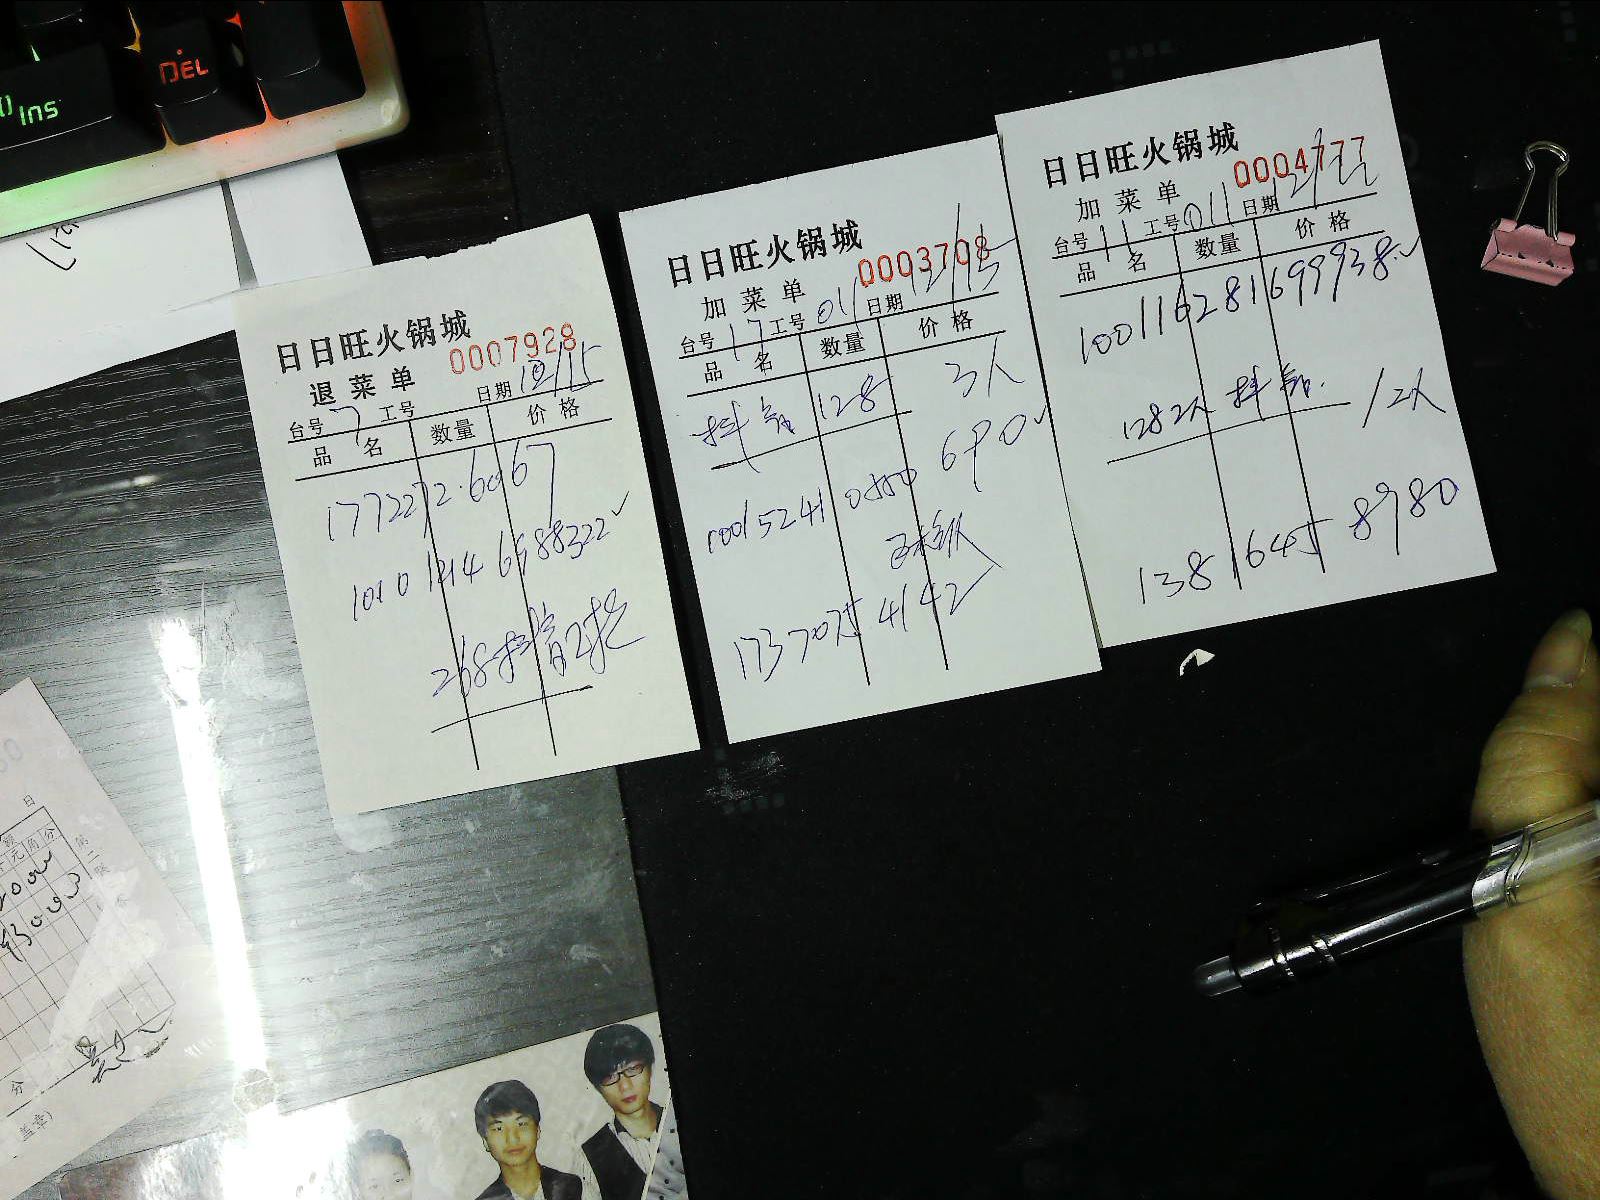 Ins
DEL
日日旺火锅城
0007928
退菜单
日期 12/15
台号 7 工号
品名 数量 价格
17732726067
1010 1214 6988322✓
268
日日旺火锅城
0003708
加菜单
台号 17 工号 011 日期 12/15
品名 数量 价格
抖音 128 3人
690✓
10015241
17370754142
日日旺火锅城
0004777
加菜单
台号 11 工号 011 日期
品名 数量 价格
100116281699938✓
128 2人 抖音
12人
13816458980
日
元角分
第二联
分
盖章)